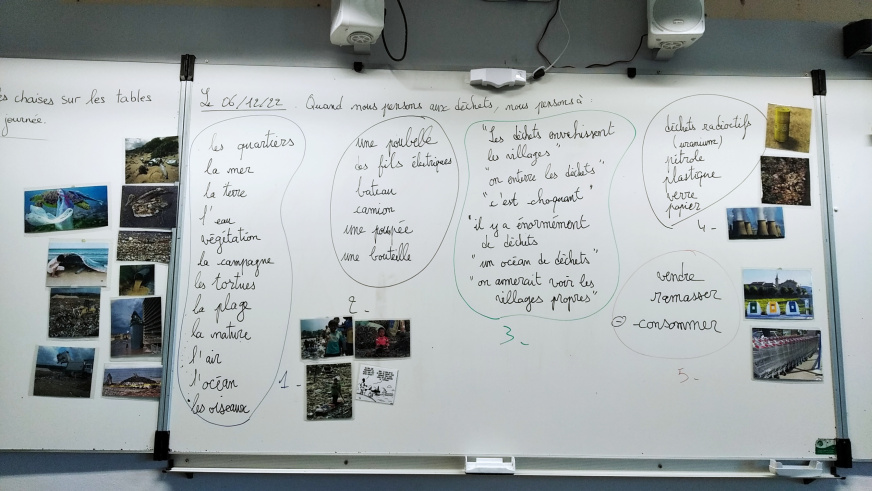 s chaises sur les tables
journée.
Le 06/12/22. Quand nous pensons aux déchets, nous pensons à :
les quartiers
la mer
la terre
l'eau
végétation
la campagne
les tortues
la plage
la nature
l'air
l'océan
les oiseaux
1_
une poubelle
des fils électriques
bateau
camion
une poupée
une bouteille
2_
"Les déchets envahissent
les villages"
"on enterre les déchets"
"c'est choquant"
"il y a énormément
de déchets
"un océan de déchets"
"on aimerait voir les
villages propres"
3_
déchets radioactifs
(uranium)
pétrole
plastique
verre
papier
4_
vendre
ramasser
⊖ consommer
5_